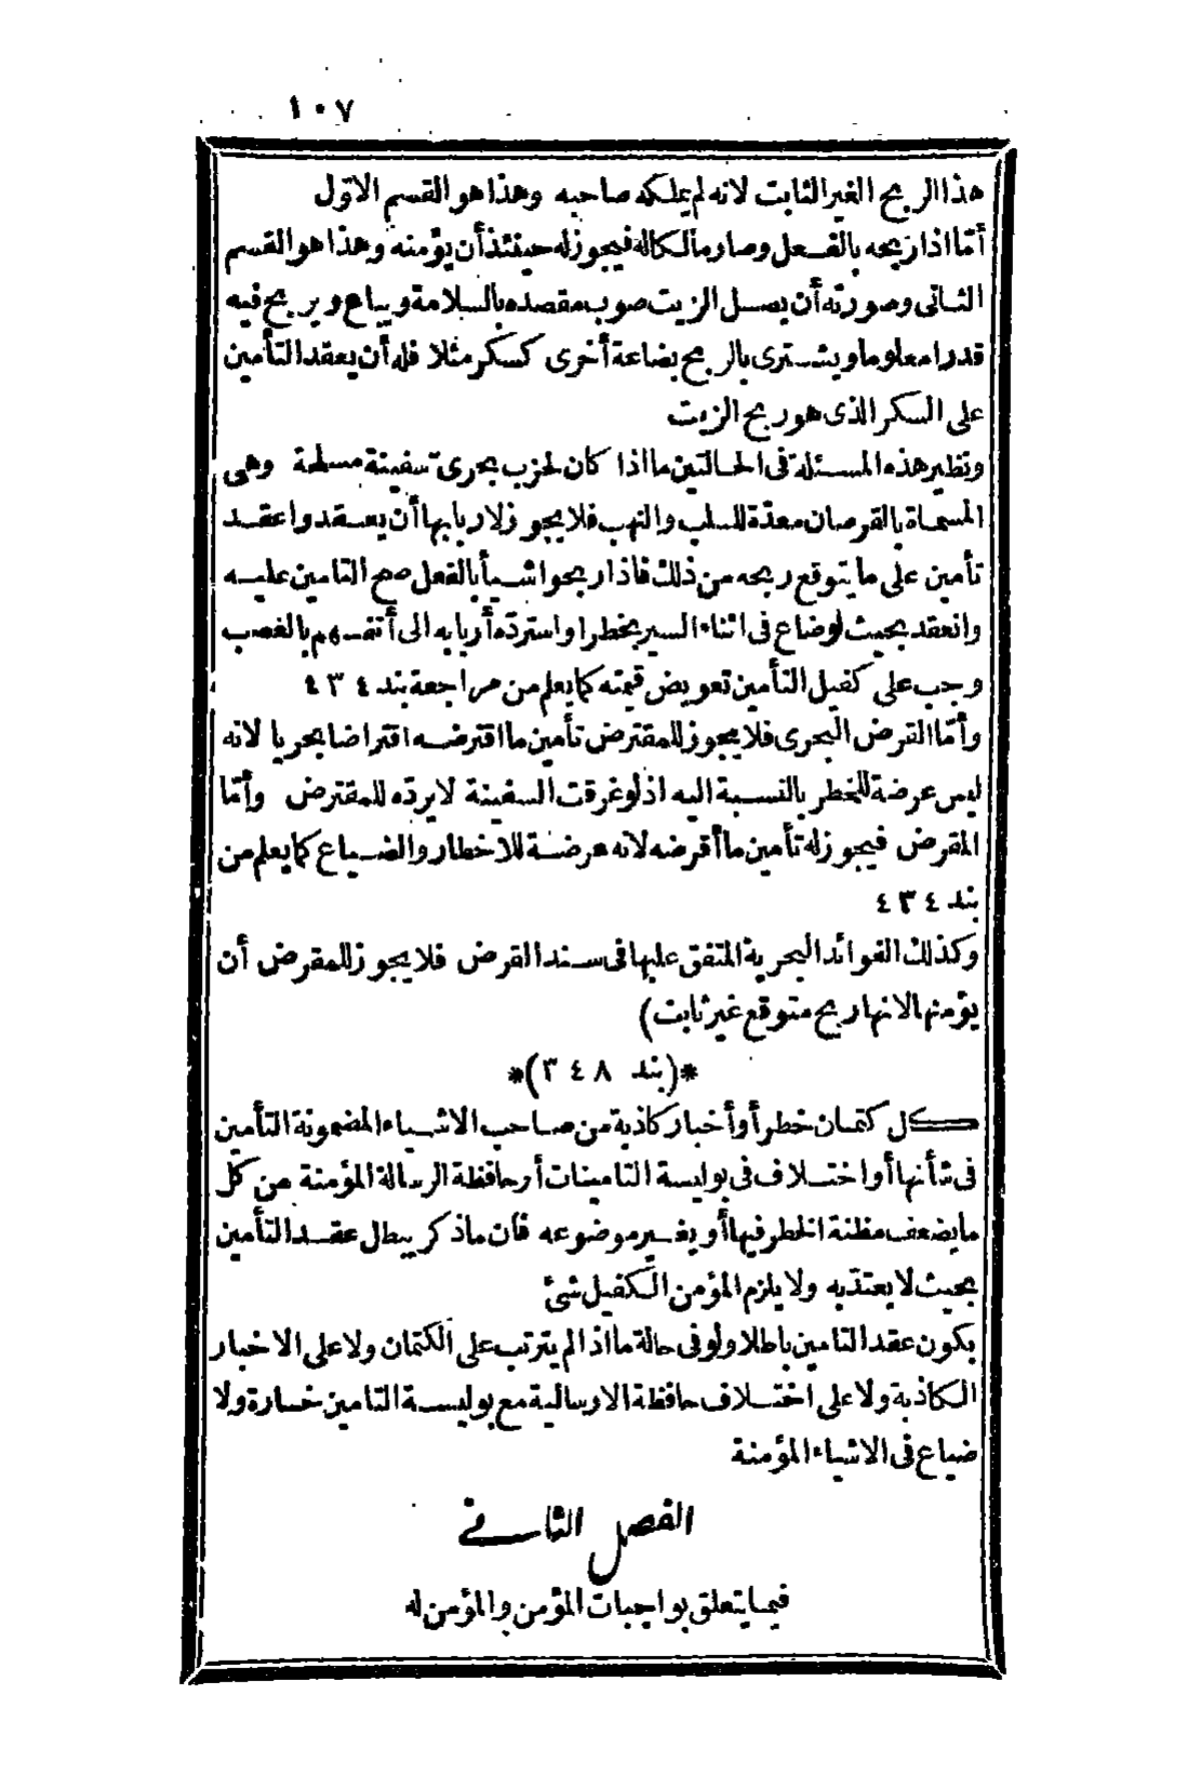 ١٠٧
هذا الربح الغير الثابت لانه لم يملكه صاحبه وهذا هو القسم الاوّل
أمّا اذا ربحه بالفعل وصار مالكا له فيجوز له حينئذ أن يؤمنه وهذا هو القسم
الثانى وصورته أن يصل الزيت صوب مقصده بالسلامة ويباع ويربح فيه
قدرا معلوما ويشترى بالربح بضاعة أخرى كسكر مثلا فله أن يعقد التأمين
على السكر الذى هو ربح الزيت
ونظير هذه المسئلة فى الحالتين ما اذا كان لحزب بحرىّ سفينة مسلحة وهى
المسماة بالقرصان معدّة للسلب والنهب فلا يجوز لاربابها أن يعقدوا عقد
تأمين على ما يتوقع ربحه من ذلك فاذا ربحوا شيأ بالفعل صح التامين عليه
وانعقد بحيث لوضاع فى اثناء السير بخطر او استردّه أربابه الى أنفسهم بالغصب
وجب على كفيل التأمين تعويض قيمته كما يعلم من مراجعة بند ٤٣٤
وأمّا القرض البحرى فلا يجوز للمقترض تأمين ما اقترضه اقتراضا بحريا لانه
ليس عرضة للخطر بالنسبة اليه اذ لو غرقت السفينة لا يردّه للمقترض وأمّا
المقرض فيجوز له تأمين ما أقرضه لانه عرضة للاخطار والضياع كما يعلم من
بند ٤٣٤
وكذلك الفوائد البحرية المتفق عليها فى سند القرض فلا يجوز للمقرض أن
يؤمنها لانها ربح متوقع غير ثابت)
*(بند ٣٤٨)*
كل كتمان خطر أو أخبار كاذبة من صاحب الاشياء المضمونة التأمين
فى شأنها أو اختلاف فى بوليسة التامينات أو حافظة الرسالة المؤمنة من كل
ما يضعف مظنة الخطر فيها أو يغير موضوعه فان ما ذكر يبطل عقد التأمين
بحيث لا يعتدّ به ولا يلزم المؤمن الكفيل شئ
يكون عقد التامين باطلا ولو فى حالة ما اذا لم يترتب على الكتمان ولا على الاخبار
الكاذبة ولا على اختلاف حافظة الارسالية مع بوليسة التامين خسارة ولا
ضياع فى الاشياء المؤمنة
الفصل الثانى
فيما يتعلق بواجبات المؤمن والمؤمن له